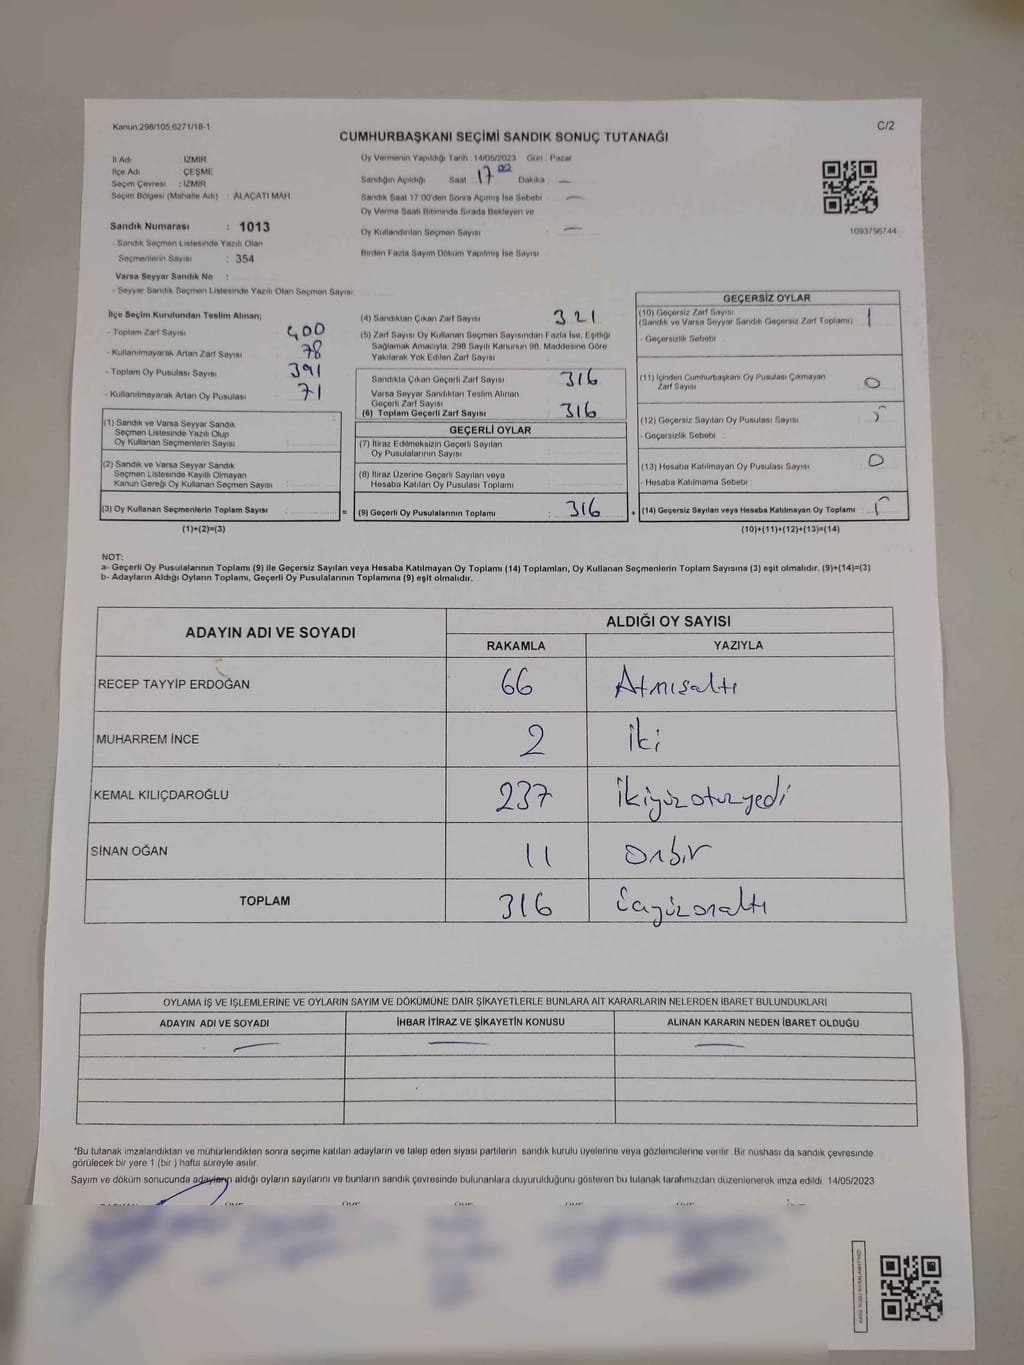 Kanun:298/105,6271/18-1
C/2
CUMHURBAŞKANI SEÇİMİ SANDIK SONUÇ TUTANAĞI
İl Adı İZMİR
İlçe Adı : ÇEŞME
Seçim Çevresi : İZMİR
Seçim Bölgesi (Mahalle Adı) : ALAÇATI MAH.
Oy Vermenin Yapıldığı Tarih : 14/05/2023 Gün : Pazar
Sandığın Açıldığı Saat 17 00 Dakika : —
Sandık Saat 17:00'den Sonra Açımış İse Sebebi : —
Oy Verme Saati Bitiminde Sırada Bekleyen ve
Oy Kullandırılan Seçmen Sayısı : —
Birden Fazla Sayım Döküm Yapılmış İse Sayısı
1093756744
Sandık Numarası : 1013
- Sandık Seçmen Listesinde Yazılı Olan
Seçmenlerin Sayısı : 354
Varsa Seyyar Sandık No :
- Seyyar Sandık Seçmen Listesinde Yazılı Olan Seçmen Sayısı:
İlçe Seçim Kurulundan Teslim Alınan;
- Toplam Zarf Sayısı 400
- Kullanılmayarak Artan Zarf Sayısı 78
- Toplam Oy Pusulası Sayısı 391
- Kullanılmayarak Artan Oy Pusulası 71
(1) Sandık ve Varsa Seyyar Sandık
Seçmen Listesinde Yazılı Olup
Oy Kullanan Seçmenlerin Sayısı
(2) Sandık ve Varsa Seyyar Sandık
Seçmen Listesinde Kayıtlı Olmayan
Kanun Gereği Oy Kullanan Seçmen Sayısı
(3) Oy Kullanan Seçmenlerin Toplam Sayısı
(1)+(2)=(3)
=
(4) Sandıktan Çıkan Zarf Sayısı 321
(5) Zarf Sayısı Oy Kullanan Seçmen Sayısından Fazla İse, Eşitliği
Sağlamak Amacıyla, 298 Sayılı Kanunun 98. Maddesine Göre
Yakılarak Yok Edilen Zarf Sayısı
Sandıkta Çıkan Geçerli Zarf Sayısı 316
Varsa Seyyar Sandıktan Teslim Alınan
Geçerli Zarf Sayısı
(6) Toplam Geçerli Zarf Sayısı 316
GEÇERLİ OYLAR
(7) İtiraz Edilmeksizin Geçerli Sayılan
Oy Pusulalarının Sayısı
(8) İtiraz Üzerine Geçerli Sayılan veya
Hesaba Katılan Oy Pusulası Toplamı
(9) Geçerli Oy Pusulalarının Toplamı : 316
+
GEÇERSİZ OYLAR
(10) Geçersiz Zarf Sayısı
(Sandık ve Varsa Seyyar Sandık Geçersiz Zarf Toplamı) 1
- Geçersizlik Sebebi :
(11) İçinden Cumhurbaşkanı Oy Pusulası Çıkmayan
Zarf Sayısı 0
(12) Geçersiz Sayılan Oy Pusulası Sayısı
- Geçersizlik Sebebi :
(13) Hesaba Katılmayan Oy Pusulası Sayısı 0
- Hesaba Katılmama Sebebi :
(14) Geçersiz Sayılan veya Hesaba Katılmayan Oy Toplamı
(10)+(11)+(12)+(13)=(14)
NOT:
a- Geçerli Oy Pusulalarının Toplamı (9) ile Geçersiz Sayılan veya Hesaba Katılmayan Oy Toplamı (14) Toplamları, Oy Kullanan Seçmenlerin Toplam Sayısına (3) eşit olmalıdır. (9)+(14)=(3)
b- Adayların Aldığı Oyların Toplamı, Geçerli Oy Pusulalarının Toplamına (9) eşit olmalıdır.
ADAYIN ADI VE SOYADI ALDIĞI OY SAYISI
RAKAMLA YAZIYLA
RECEP TAYYİP ERDOĞAN 66 Atmışaltı
MUHARREM İNCE 2 iki
KEMAL KILIÇDAROĞLU 237 ikiyüzotuzyedi
SİNAN OĞAN 11 Onbir
TOPLAM 316 üçyüzonaltı
OYLAMA İŞ VE İŞLEMLERİNE VE OYLARIN SAYIM VE DÖKÜMÜNE DAİR ŞİKAYETLERLE BUNLARA AİT KARARLARIN NELERDEN İBARET BULUNDUKLARI
ADAYIN ADI VE SOYADI İHBAR İTİRAZ VE ŞİKAYETİN KONUSU ALINAN KARARIN NEDEN İBARET OLDUĞU
— — —
*Bu tutanak imzalandıktan ve mühürlendikten sonra seçime katılan adayların ve talep eden siyasi partilerin sandık kurulu üyelerine veya gözlemcilerine verilir. Bir nushası da sandık çevresinde
görülecek bir yere 1 (bir ) hafta süreyle asılır.
Sayım ve döküm sonucunda adayların aldığı oyların sayılarını ve bunların sandık çevresinde bulunanlara duyurulduğunu gösteren bu tutanak tarafımızdan düzenlenerek imza edildi. 14/05/2023